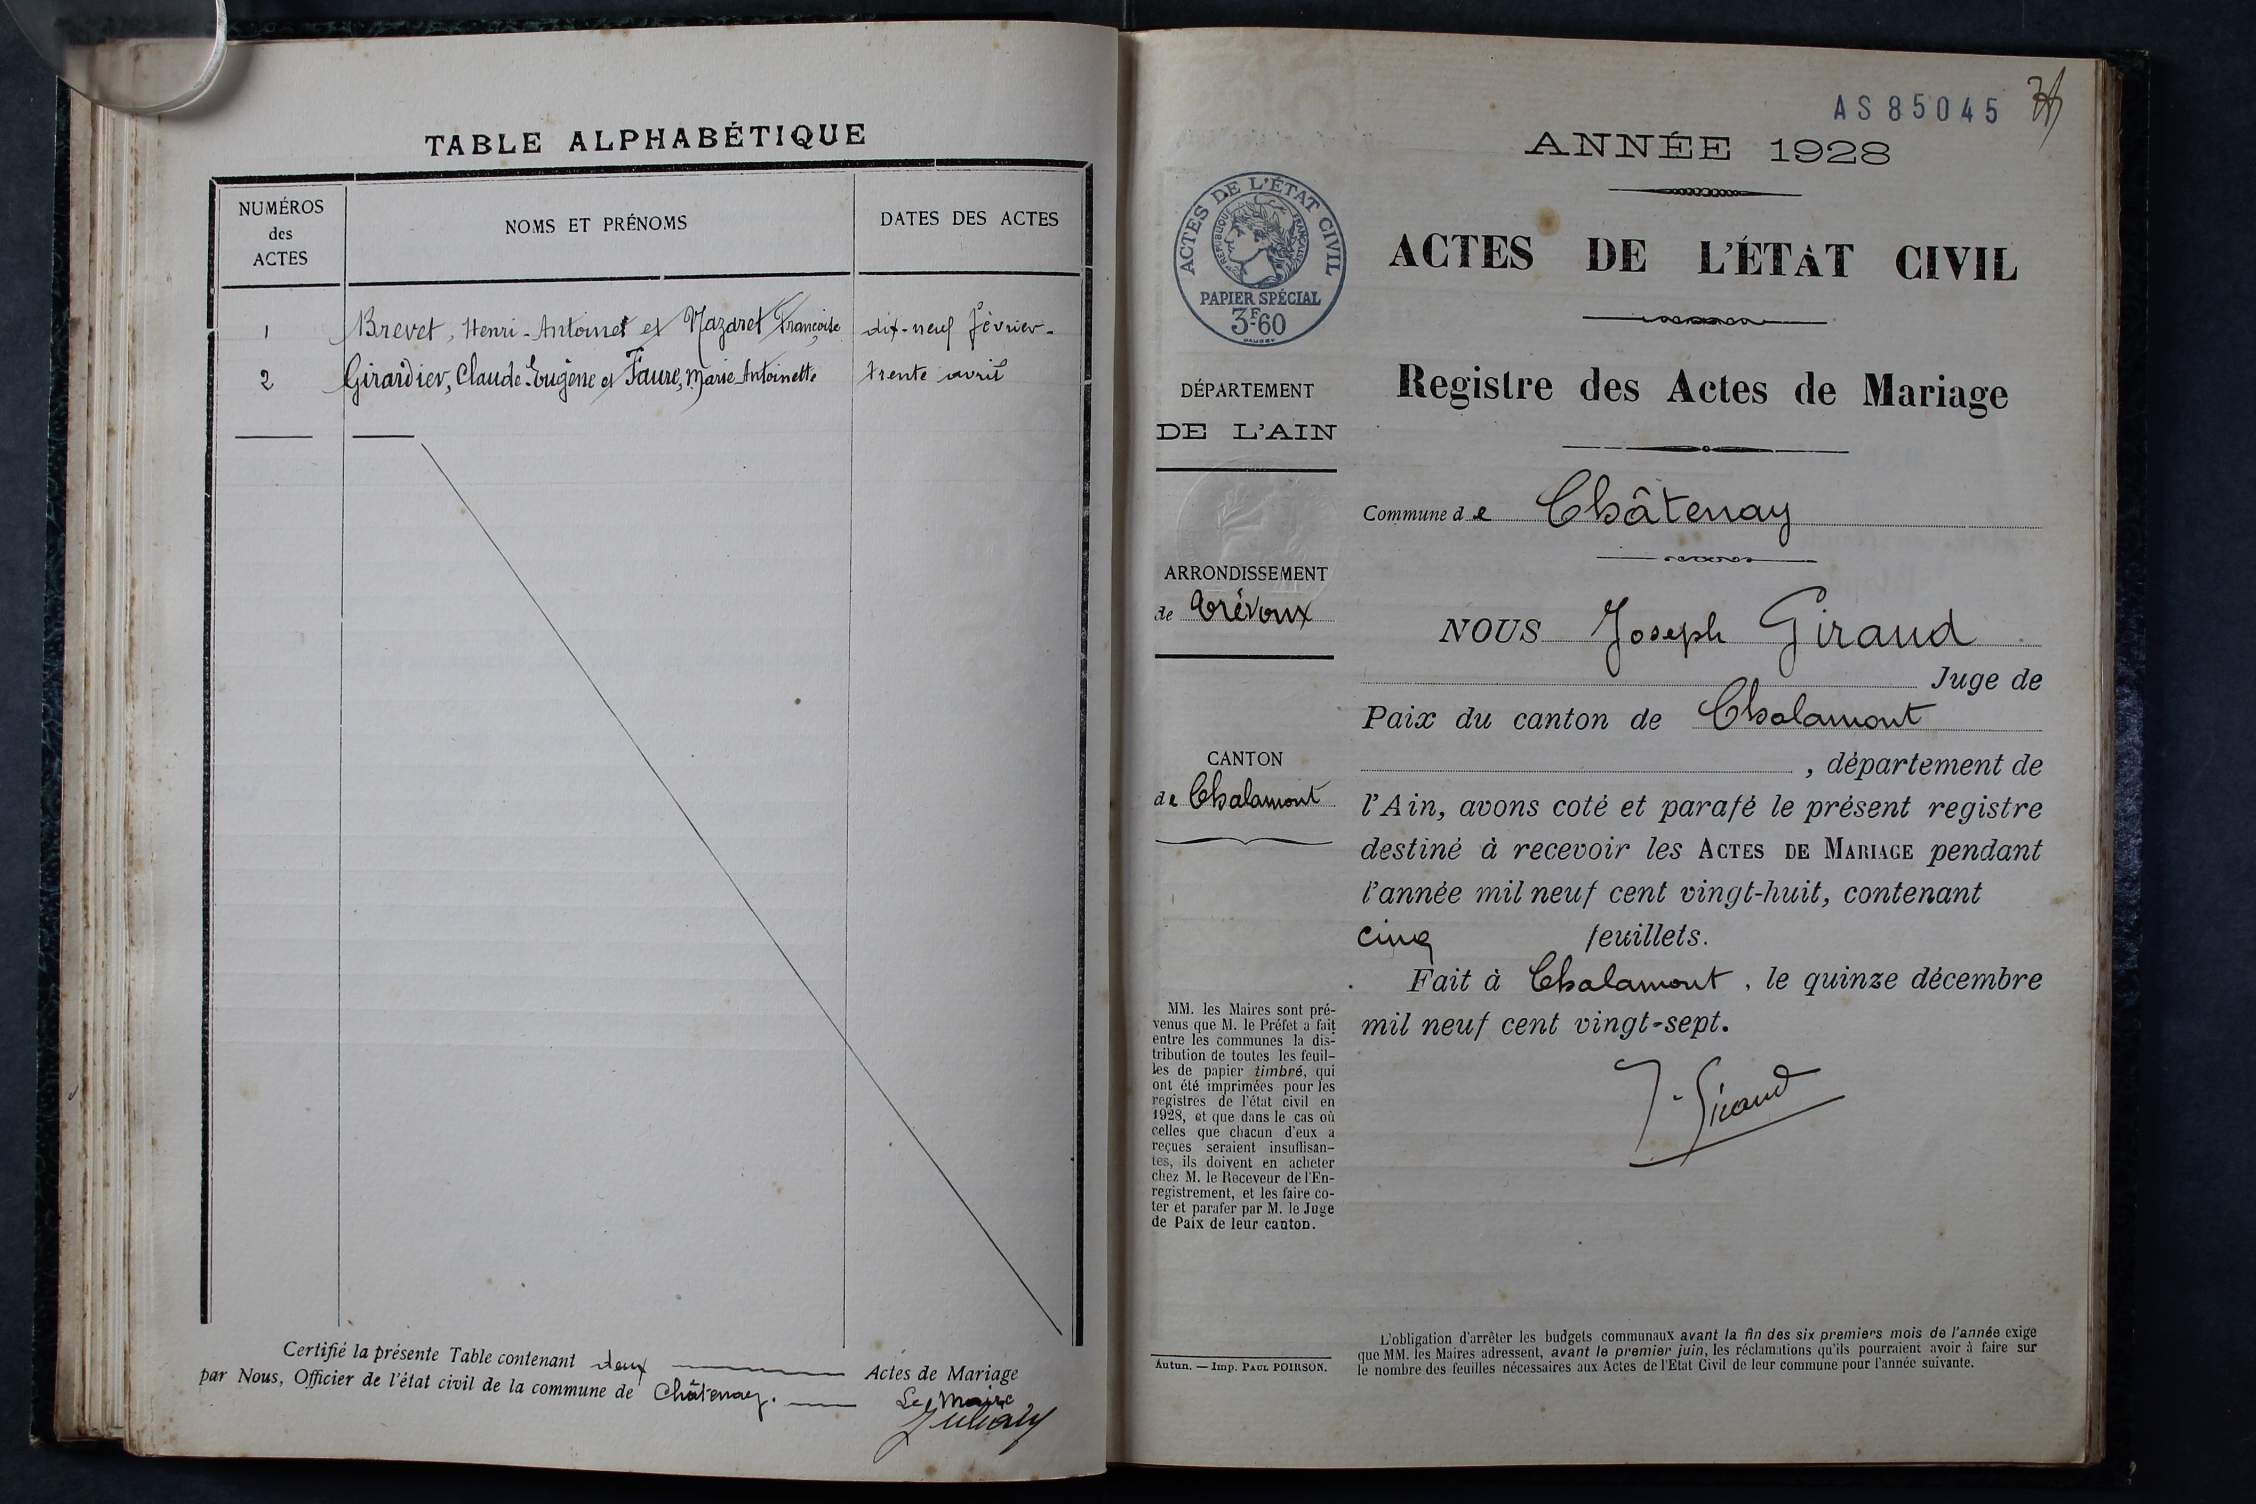 TABLE ALPHABÉTIQUE
NUMÉROS
des
ACTES
NOMS ET PRÉNOMS
DATES DES ACTES
1 Brevet, Henri-Antoinet et Nazaret Françoise dix-neuf février-
2 Girardier, Claude Eugène et Faure, Marie-Antoinette trente avril
Certifié la présente Table contenant deux Actes de Mariage
par Nous, Officier de l'état civil de la commune de Châtenay.
Le Maire
AS85045
ANNÉE 1928
ACTES DE L'ÉTAT CIVIL
RÉPUBLIQUE FRANÇAISE
PAPIER SPÉCIAL
3F60
DÉPARTEMENT
DE L'AIN
ARRONDISSEMENT
de Trévoux
CANTON
de Chalamont
MM. les Maires sont pré-
venus que M. le Préfet a fait
entre les communes la dis-
tribution de toutes les feuil-
les de papier timbré, qui
ont été imprimées pour les
registres de l'état civil en
1928, et que dans le cas où
celles que chacun d'eux a
reçues seraient insuffisan-
tes, ils doivent en acheter
chez M. le Receveur de l'En-
registrement, et les faire co-
ter et parafer par M. le Juge
de Paix de leur canton.
Autun. — Imp. PAUL POIRSON.
ACTES DE L'ÉTAT CIVIL
Registre des Actes de Mariage
Commune de Châtenay
NOUS Joseph Giraud
Juge de
Paix du canton de Chalamont
, département de
l'Ain, avons coté et parafé le présent registre
destiné à recevoir les ACTES DE MARIAGE pendant
l'année mil neuf cent vingt-huit, contenant
cinq feuillets.
Fait à Chalamont, le quinze décembre
mil neuf cent vingt-sept.
J. Giraud
L'obligation d'arrêter les budgets communaux avant la fin des six premiers mois de l'année exige
que MM. les Maires adressent, avant le premier juin, les réclamations qu'ils pourraient avoir à faire sur
le nombre des feuilles nécessaires aux Actes de l'Etat Civil de leur commune pour l'année suivante.